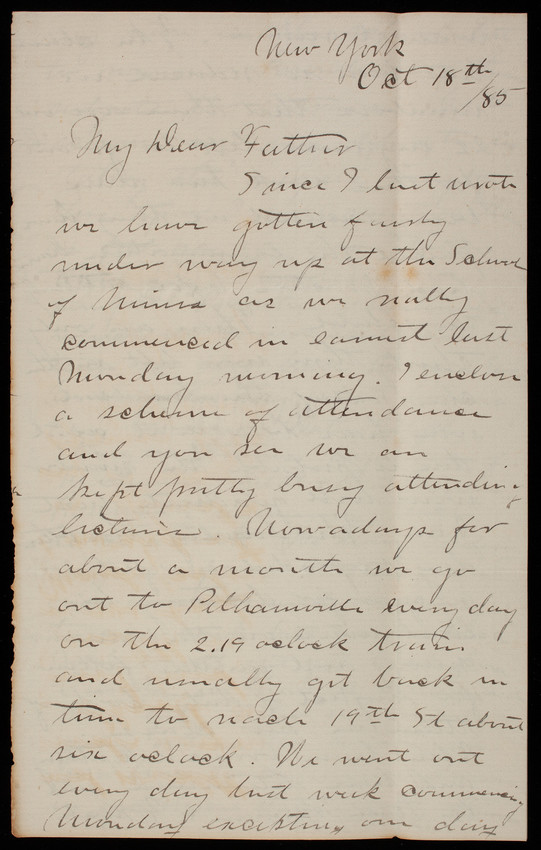 New York
Oct 18th/85
My Dear Father
Since I last wrote
we have gotten fairly
under way up at the School
of Mines as we really
commenced in earnest last
Monday morning. I enclose
a scheme of attendance
and you see we are
kept pretty busy attending
lectures. Nowadays for
about a month we go
out to Pelhamville every day
on the 2.19 oclock train
and usually get back in
time to reach 19th St about
six oclock. We went out
every day last week commencing
Monday excepting one day